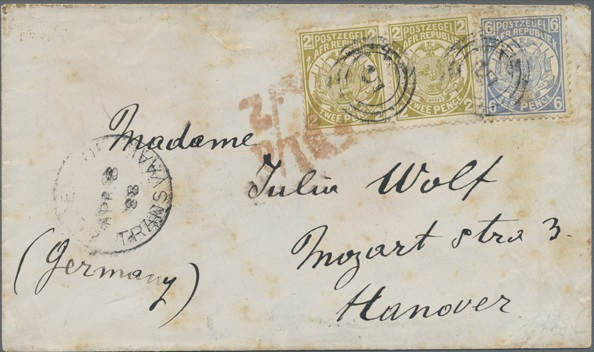 2 POSTZEGEL 2
AFR. REPUBLIEK
TWEE PENCE
2 POSTZEGEL 2
AFR. REPUBLIEK
2 TWEE PENCE 2
6 POSTZEGEL 6
AFR. REPUBLIEK
6 ZES PENCE 6
Madame
Julia Wolf
Mozart stra 3.
Hanover
(Germany)
APR 8 88
TRANSVAAL